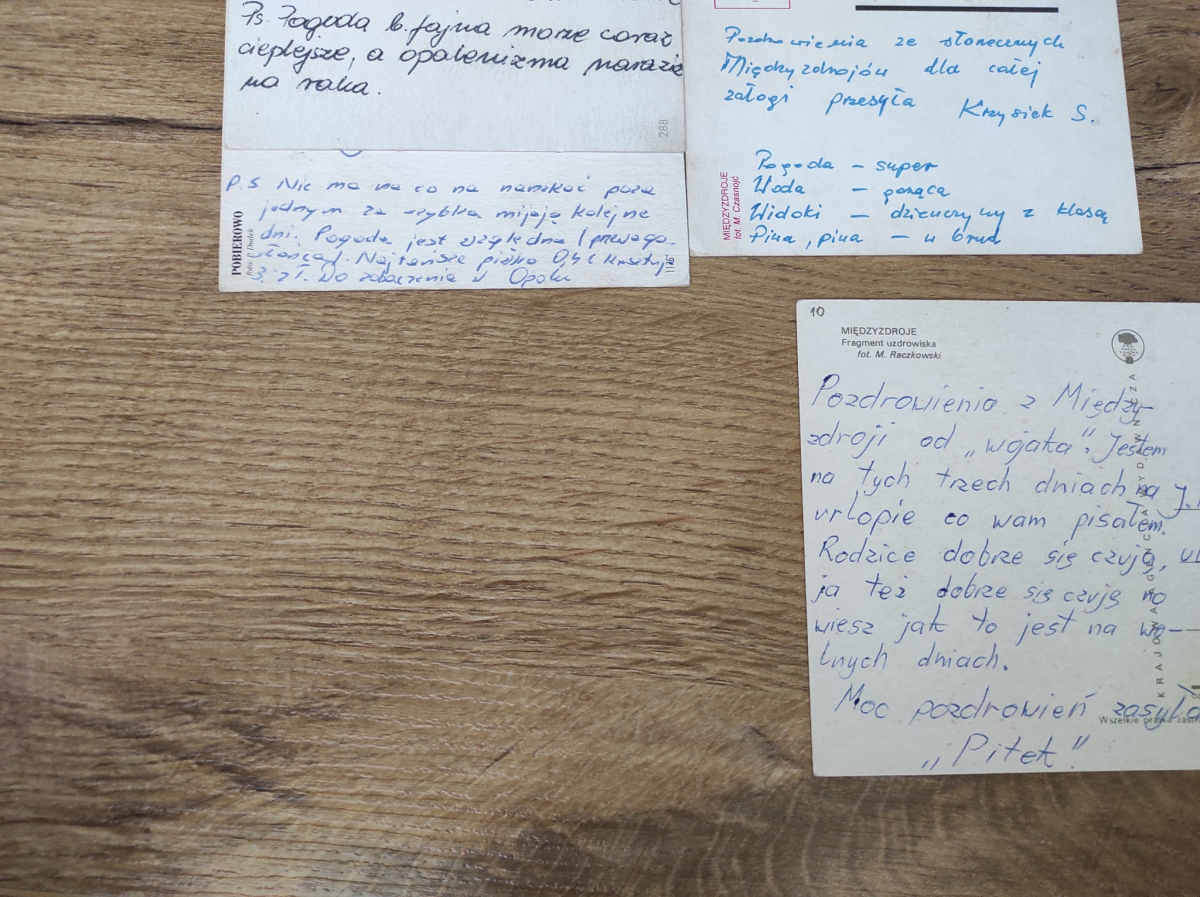 Ps. Pogoda b. fajna morze coraz
cieplejsze, a opalenizma narazie
na raka.
288
P.S Nic ma na co na narzekać poza
jednym za szybko mijają kolejne
dni. Pogoda jest względna (przewaga
słońca). Najtańsze piwko 0,4 l kosztuje
3. zł. Do zobaczenia w Opolu
POBIEROWO
foto: P. Dudek
Pozdrowienia ze słonecznych
Międzyzdrojów dla całej
załogi przesyła Krzysiek S.
Pogoda – super
Woda – gorąca
Widoki – dziewczyny z klasą
Piwa, piwa – w brud
MIĘDZYZDROJE
fot. M. Czasnojć
10
MIĘDZYZDROJE
Fragment uzdrowiska
fot. M. Raczkowski
Pozdrowienia z Między-
zdroji od „wojaka”. Jestem
na tych trzech dniach na
urlopie co wam pisałem.
Rodzice dobrze się czują,
ja też dobrze się czuję no
wiesz jak to jest na wo-
lnych dniach.
Moc pozdrowień zasyła
„Pitek”
KRAJOWA AGENCJA WYDAWNICZA
Wszelkie prawa zastr